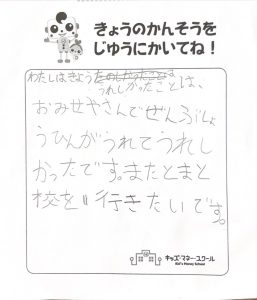 きょうのかんそうを
じゆうにかいてね!
わたしはきょうたのしかったことは
うれしかったことは、
おみせやさんでぜんぶしょ
うひんがうれてうれし
かったです。またとまと
校を行きたいです。
キッズ・マネー・スクール
Kid's Money School